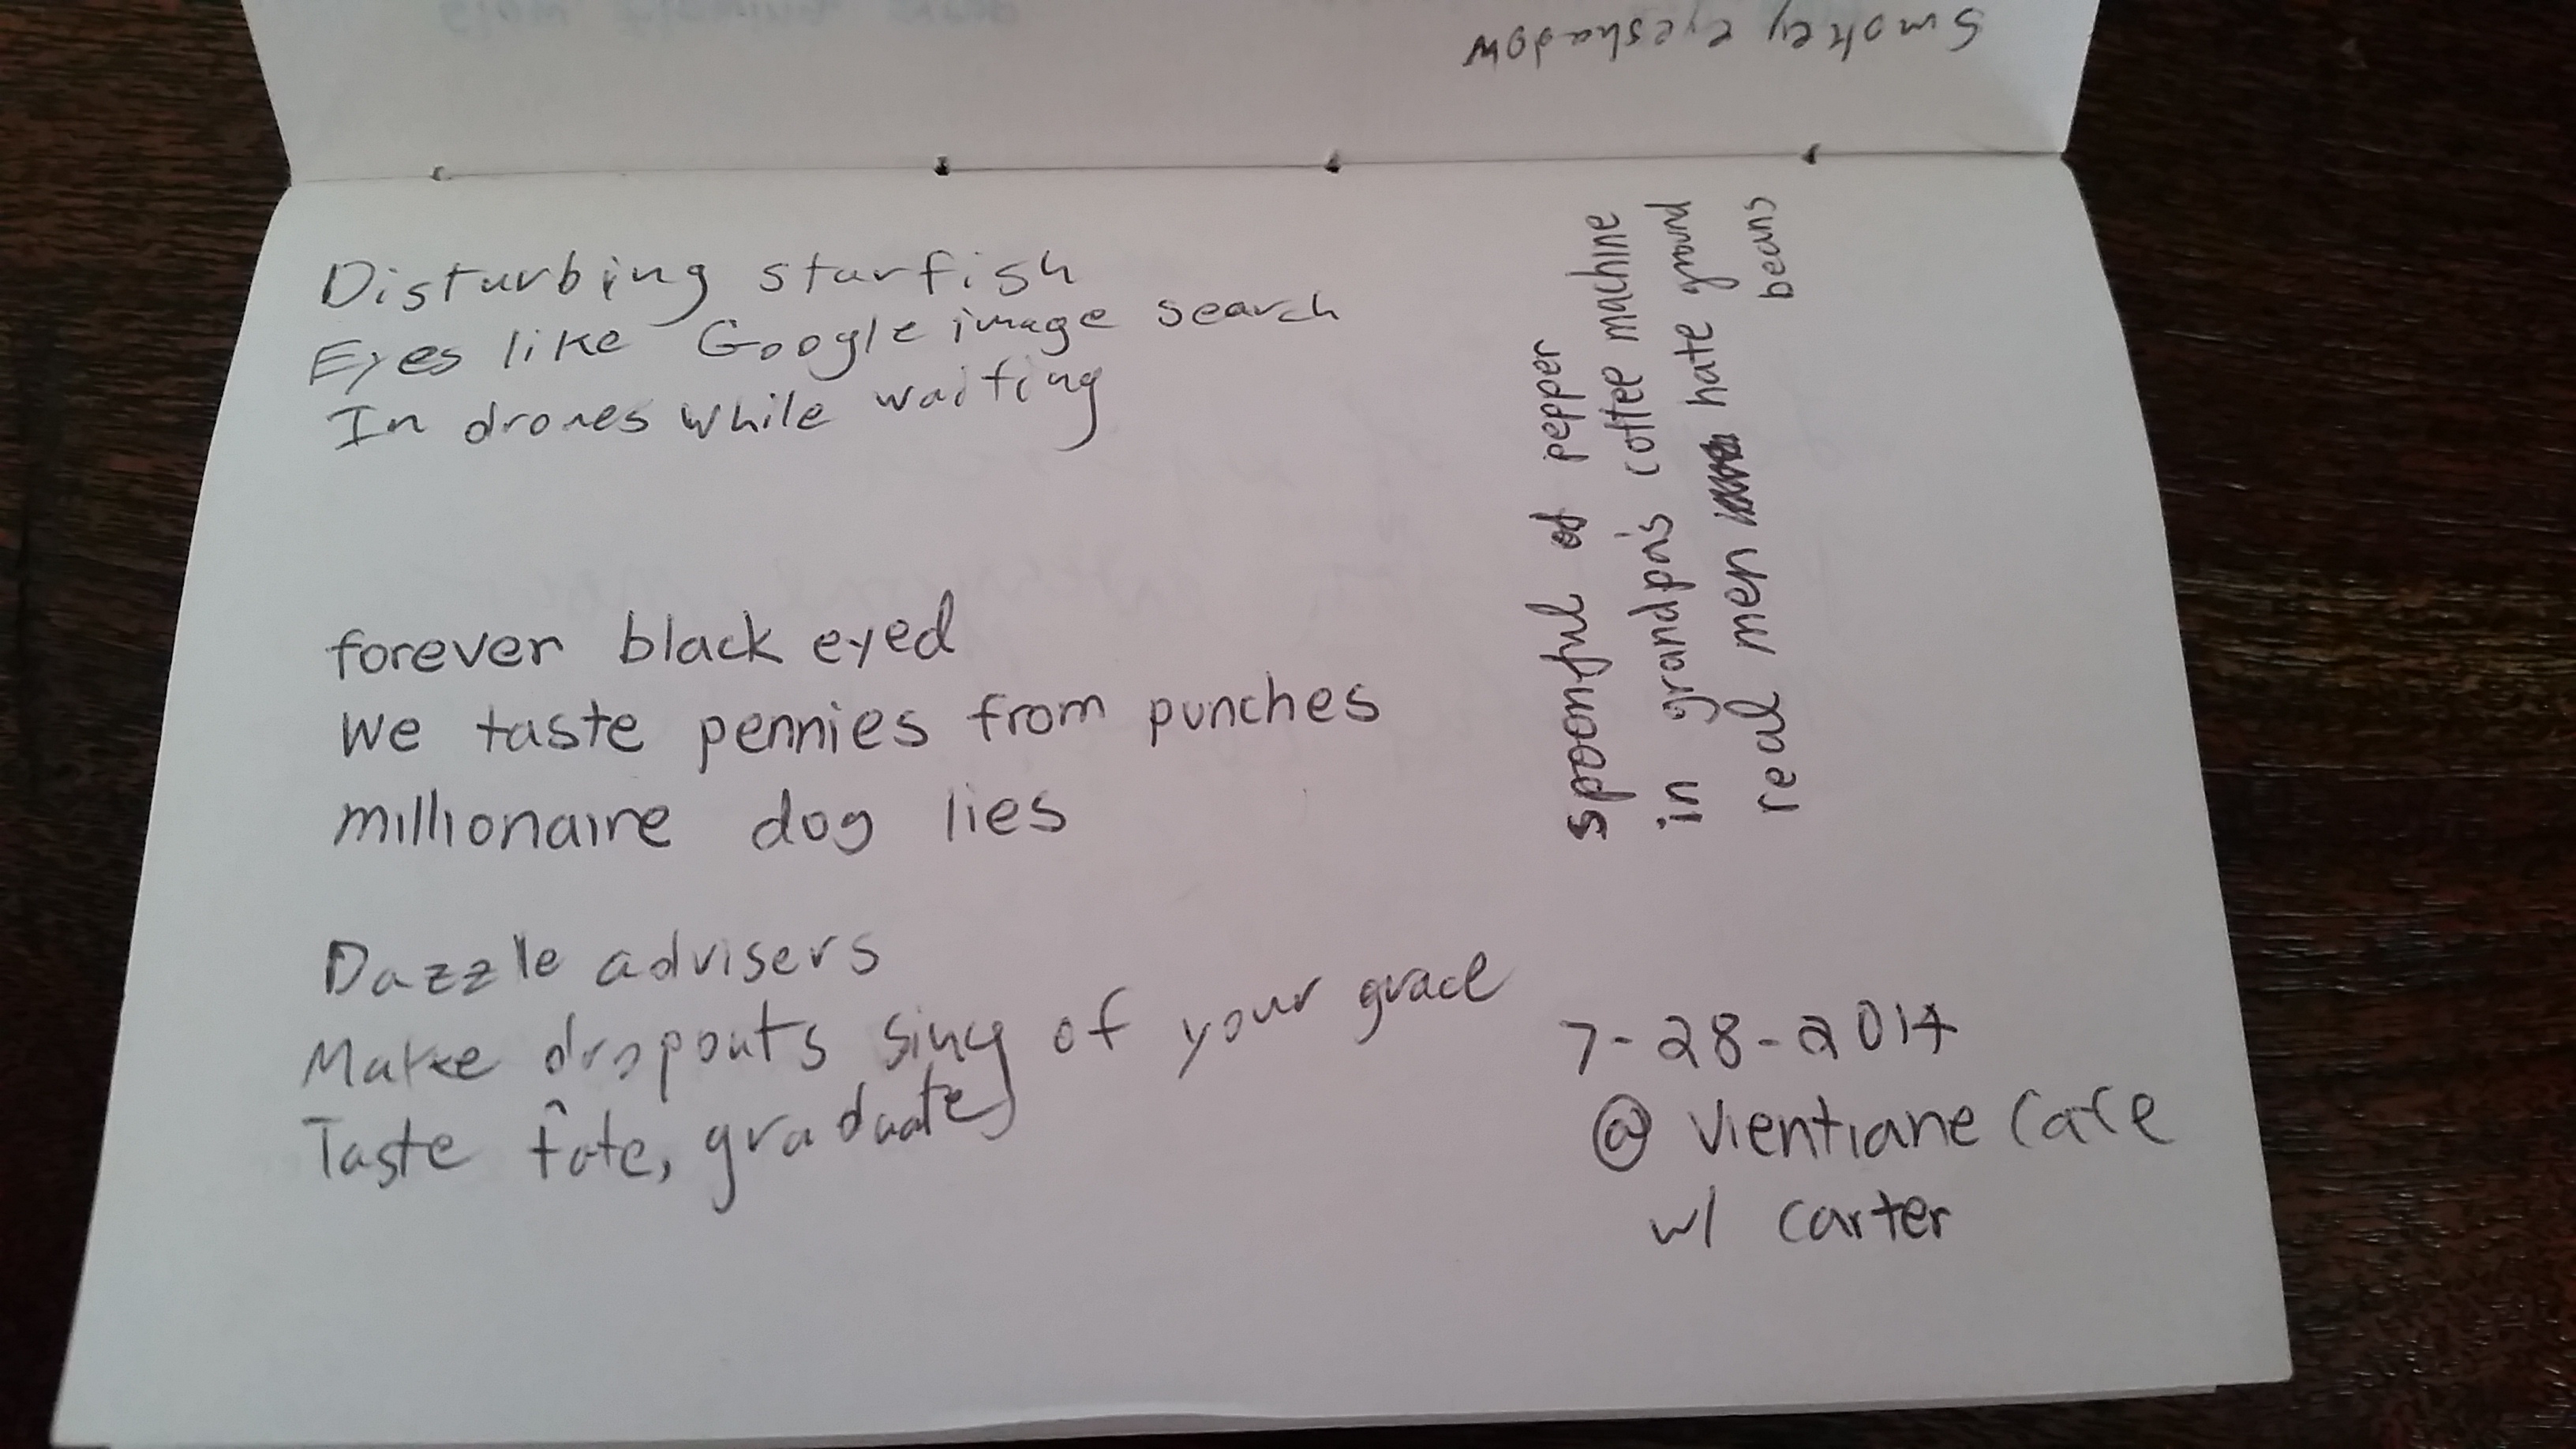 Smokey eyeshadow
Disturbing starfish
Eyes like Google image search
In drones while waiting
forever black eyed
We taste pennies from punches
millionaire dog lies
Dazzle advisers
Make dropouts sing of your grace
Taste fate, graduate
spoonful of pepper
in grandpa's coffee machine
real men hate ground
beans
7-28-2014
@ Vientiane Cafe
w/ carter